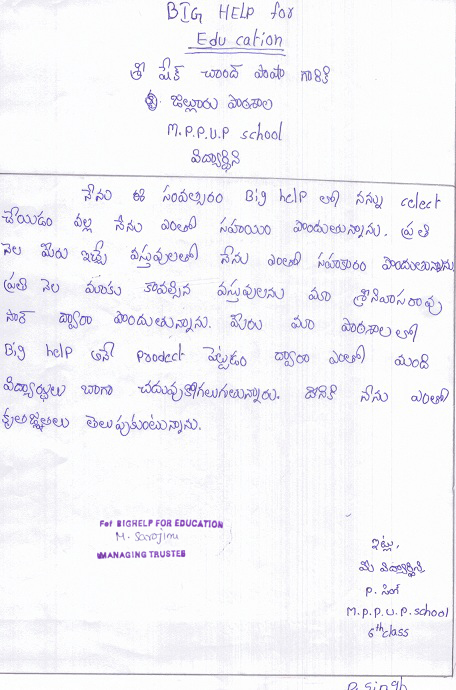 BIG HELP for
Education
శ్రీ షేక్ చాంద్ పాషా గారికి
జిల్లూరు పాఠశాల
M.P.P.U.P school
విద్యార్థిని
నేను ఈ సంవత్సరం Big help లో నన్ను celect
చేయడం వల్ల నేను ఎంతో సహాయం పొందుతున్నాను. ప్రతి
నెల మీరు ఇచ్చే వస్తువులతో నేను ఎంతో సహకారం పొందుతున్నాను
ప్రతి నెల మాకు కావల్సిన వస్తువులను మా శ్రీనివాసరావు
సార్ ద్వారా పొందుతున్నాను. మీరు మా పాఠశాలలో
Big help అనే Poodect పెట్టడం ద్వారా ఎంతో మంది
విద్యార్థులు బాగా చదువుకోగలుగుతున్నారు. దీనికి నేను ఎంతో
కృతజ్ఞతలు తెలుపుకుంటున్నాను.
For BIGHELP FOR EDUCATION
M. Sarojini
MANAGING TRUSTEE
ఇట్లు,
మీ విద్యార్థిని
P. సింగ్
M.P.P.U.P. school
6th class
P. Singh